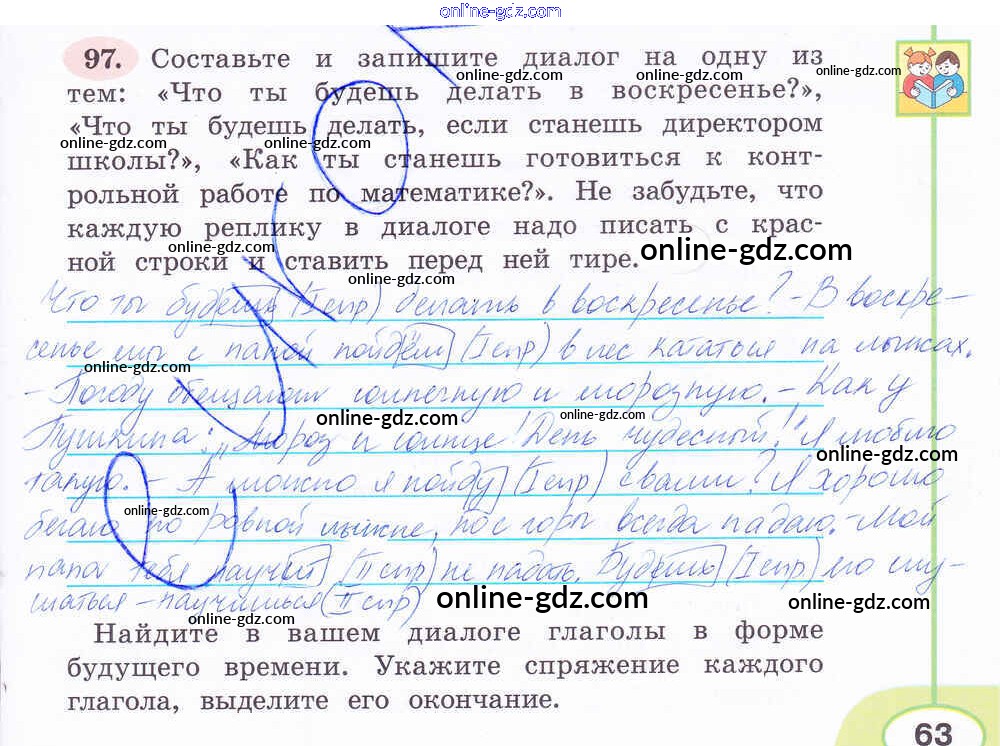 online-gdz.com
97. Составьте и запишите диалог на одну из
online-gdz.com
online-gdz.com
тем: «Что ты будешь делать в воскресенье?»,
online-gdz.com
«Что ты будешь делать, если станешь директором
online-gdz.com
online-gdz.com
школы?», «Как ты станешь готовиться к конт-
рольной работе по математике?». Не забудьте, что
каждую реплику в диалоге надо писать с крас-
online-gdz.com
online-gdz.com
ной строки и ставить перед ней тире.
Что ты будешь (I спр) делать в воскресенье? - В воскре-
сенье мы с папой пойдём (I спр) в лес кататься на лыжах.
online-gdz.com
- Погоду обещали солнечную и морозную. - Как у
online-gdz.com
online-gdz.com
Пушкина: „Мороз и солнце! День чудесный!" Я люблю
online-gdz.com
такую. - А можно я пойду (I спр) с вами? Я хорошо
бегаю по ровной лыжне, но с горы всегда падаю. - Мой
online-gdz.com
папа тебя научит (II спр) не падать. Будешь (I спр) его слу-
шаться - научишься (II спр)
online-gdz.com
online-gdz.com
online-gdz.com
Найдите в вашем диалоге глаголы в форме
будущего времени. Укажите спряжение каждого
глагола, выделите его окончание.
63